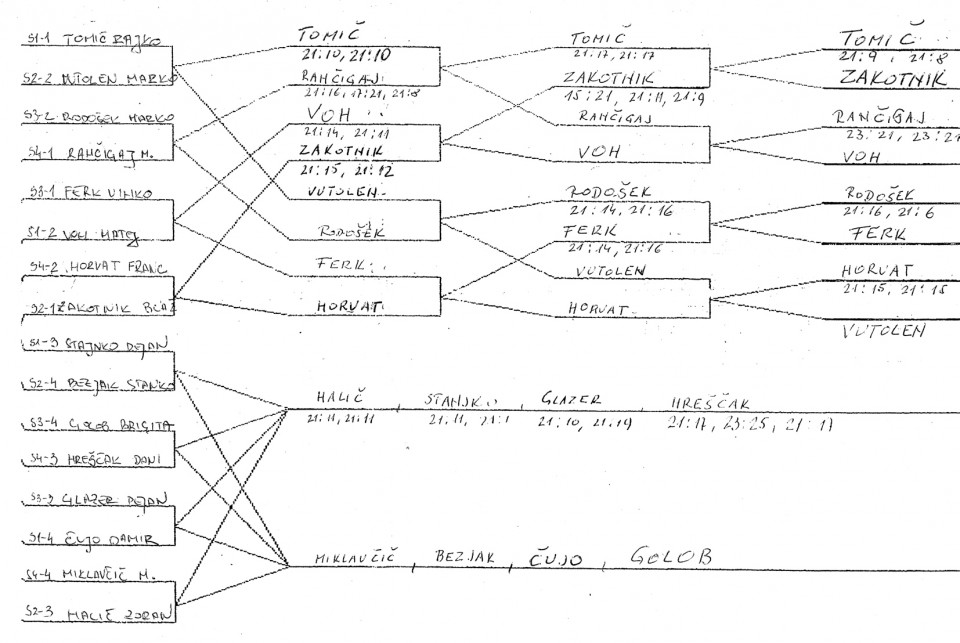 S1-1 TOMIČ RAJKO
S2-2 VUTOLEN MARKO
S3-2 RODOŠEK MARKO
S4-1 RANČIGAJ M.
S3-1 FERK VINKO
S1-2 VOH MATEJ
S4-2 HORVAT FRANC
S2-1 ZAKOTNIK BLAŽ
S1-3 STAJNKO DEJAN
S2-4 BEZJAK STANKO
S3-4 GOLOB BRIGITA
S4-3 HREŠČAK DANI
GLAZER DEJAN
S1-4 ČUJO DAMIR
S4-4 MIKLAVČIČ M.
S2-3 HALIČ ZORAN
TOMIČ
21:10, 21:10
RANČIGAJ
21:16, 17:21, 21:8
VOH
21:14, 21:11
ZAKOTNIK
21:15, 21:12
VUTOLEN
RODOŠEK
FERK
HORVAT
TOMIČ
21:17, 21:17
ZAKOTNIK
15:21, 21:11, 21:9
RANČIGAJ
VOH
RODOŠEK
21:14, 21:16
FERK
21:14, 21:16
VUTOLEN
HORVAT
TOMIČ
21:9, 21:8
ZAKOTNIK
RANČIGAJ
23:21, 23:21
VOH
RODOŠEK
21:16, 21:6
FERK
HORVAT
21:15, 21:15
VUTOLEN
HALIČ, STANJKO, GLAZER HREŠČAK
21:11, 21:11 21:11, 21:10, 21:19 21:17, 23:25, 21:17
MIKLAVČIČ, BEZJAK, ČUJO, GOLOB